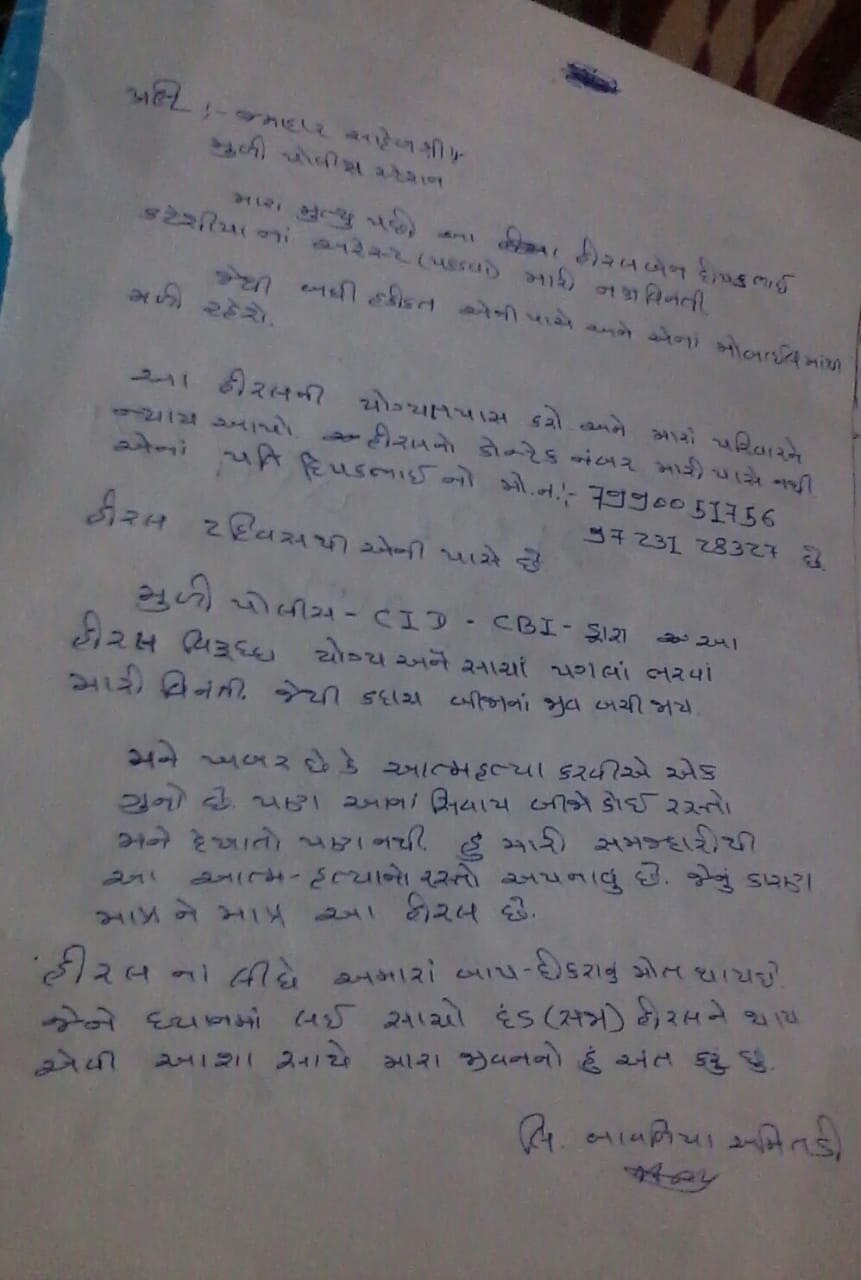 પ્રતિ :- જમાદાર સાહેબશ્રી
મુળી પોલીસ સ્ટેશન
મારા મુત્યુ પછી આ હીરલબેન દીપકભાઈ
કટેશીયાનાં અરેસ્ટ (પકડવા) મારી નમ્રવિનતી
જેથી બધી હકીકત એનીપાસે અને એનાં મોબાઈલમાંથી
મળી રહેશે.
આ હીરલની યોગ્યતપાસ કરો અને મારાં પરિવારને
ન્યાય આપો. હીરલનો કોન્ટેક નંબર મારી પાસે નથી
એનાં પતિ દિપકભાઈ નો મો.ન.:- 7990051756
97231 28327 છે.
હીરલ ૨ દિવસથી એની પાસે છે
મુળી પોલીસ - CID - CBI - દ્વારા આ
હીરલ વિરૂધ્ધ યોગ્ય અને સાચાં પગલાં ભરવા
મારી વિનંતી. જેથી કદાચ બીજાનાં જીવ બચી જાય
મને ખબર છે કે આત્મહત્યા કરવીએ એક
ગુનો છે. પણ આનાં સિવાય બીજો કોઈ રસ્તો
મને દેખાતો પણ નથી. હું મારી સમજદારીથી
આ આત્મ-હત્યાનો રસ્તો અપનાવુ છે. જેનું કારણ
માત્ર ને માત્ર આ હીરલ છે.
હીરલ નાં લીધે અમારાં બાપ-દીકરાનું મોત થાયછે.
જેને ધ્યાનમાં લઈ સાચો દંડ (સજા) હીરલને થાય
એવી આશા સાથે મારા જીવનનો હું અંત કરું છું.
લિ. બાવળિયા